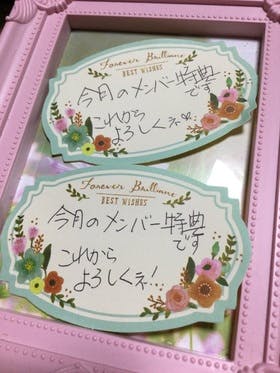 Forever Brilliant
BEST WISHES
今月のメンバー特典
です
これから
よろしくネ
Forever Brilliant
BEST WISHES
今月のメンバー特典
です
これから
よろしくネ!